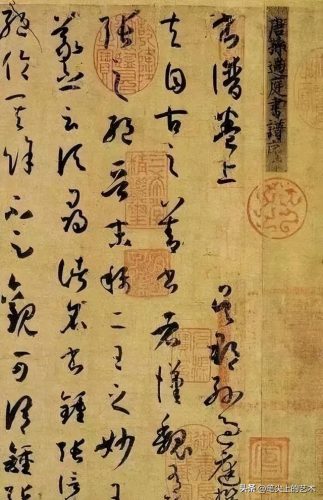 唐孫過庭書譜序
書譜卷上 吳郡孫過庭撰
夫自古之善書者漢魏有
張之絕晉末稱二王之妙王
羲之云頃尋諸名書鍾張信
絕倫其餘不足觀可謂鍾張
头条 @笔尖上的艺术